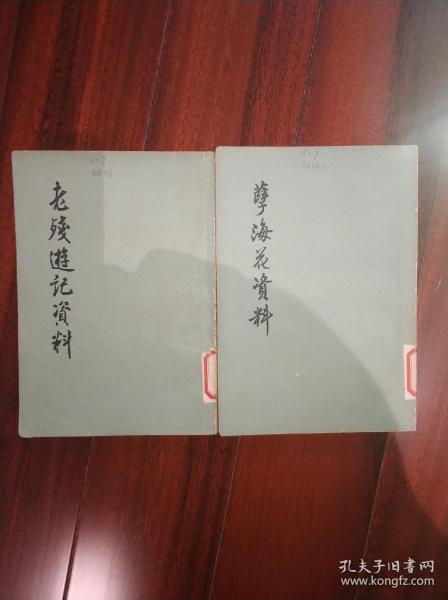 老殘遊記資料
孽海花資料
孔夫子旧书网
www.kongfz.com